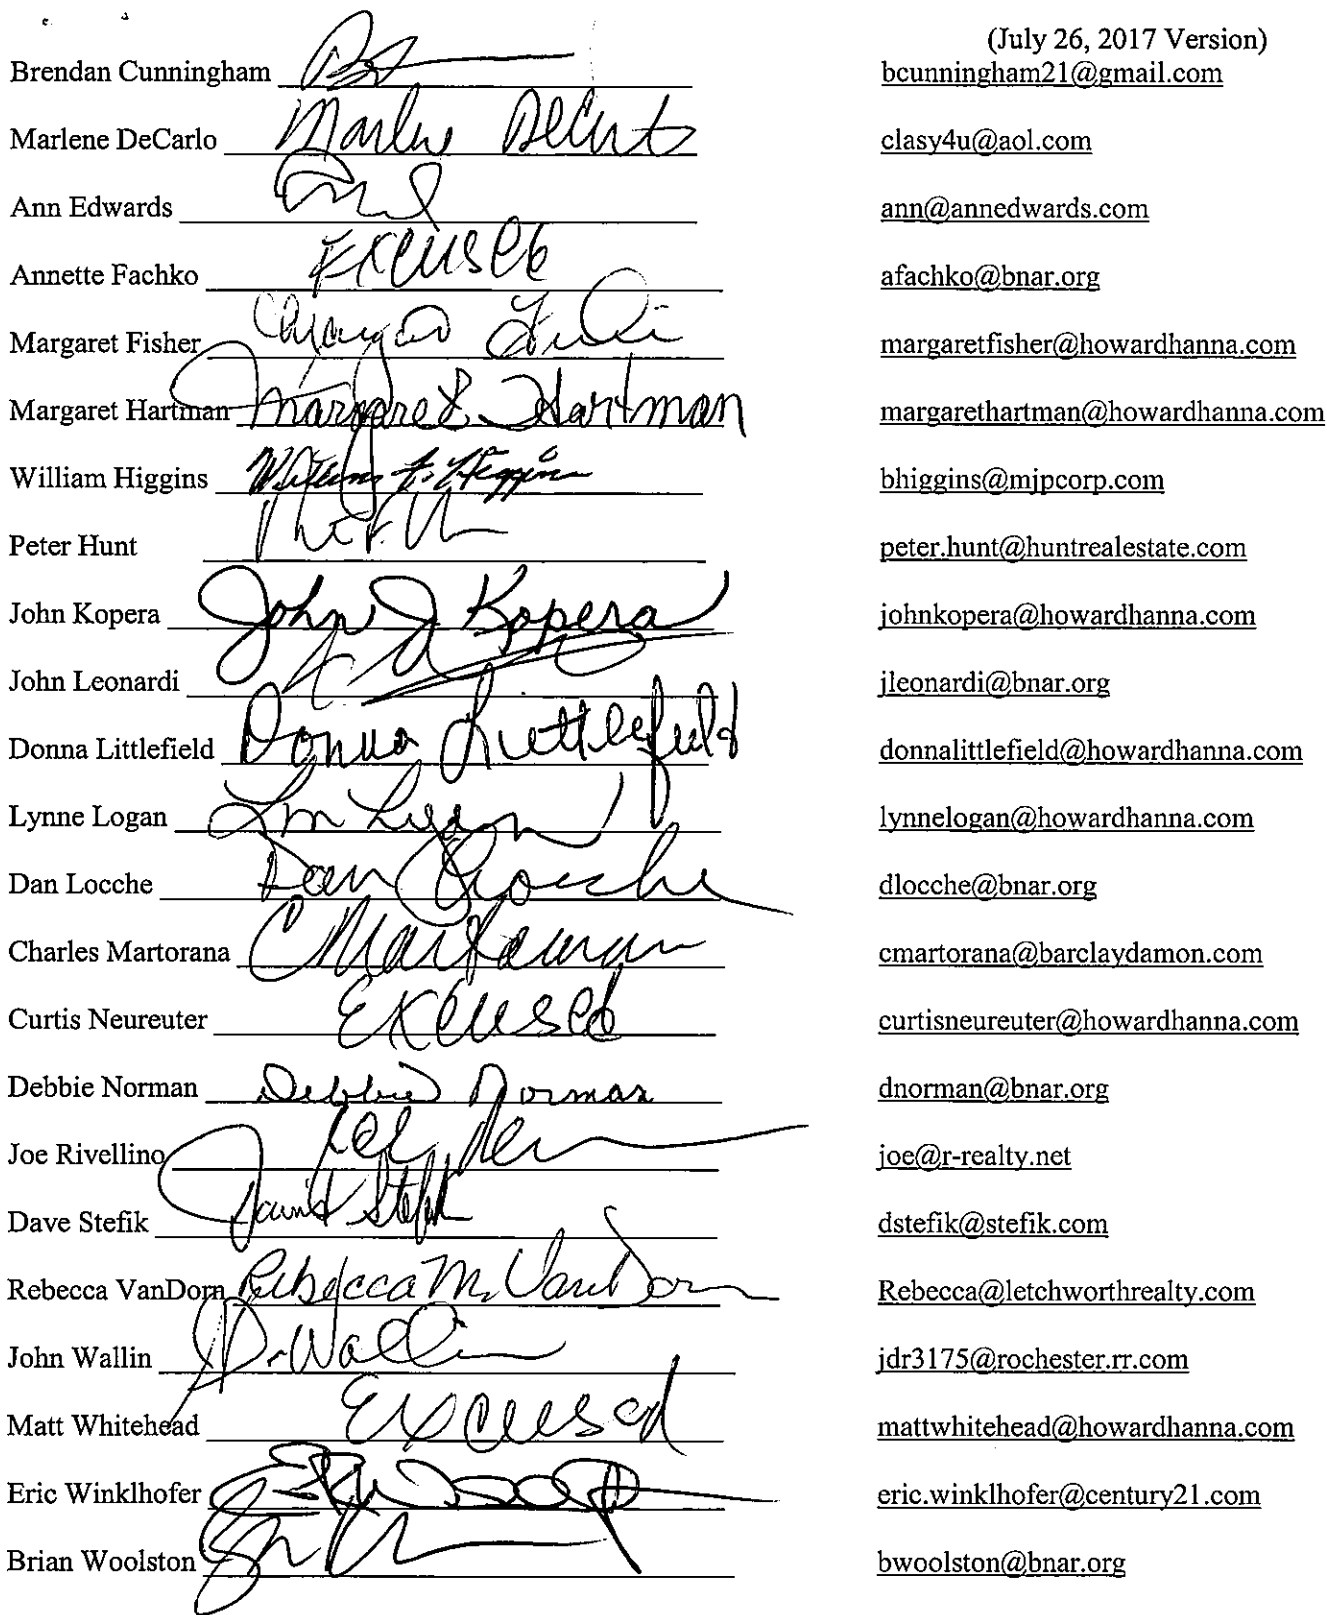 (July 26, 2017 Version)
Brendan Cunningham bcunningham21@gmail.com
Marlene DeCarlo Marlene DeCarlo clasy4u@aol.com
Ann Edwards ann@annedwards.com
Annette Fachko Excused afachko@bnar.org
Margaret Fisher margaretfisher@howardhanna.com
Margaret Hartman Margaret Hartman margarethartman@howardhanna.com
William Higgins William F. Higgins bhiggins@mjpcorp.com
Peter Hunt peter.hunt@huntrealestate.com
John Kopera John J Kopera johnkopera@howardhanna.com
John Leonardi jleonardi@bnar.org
Donna Littlefield Donna Littlefield donnalittlefield@howardhanna.com
Lynne Logan lynnelogan@howardhanna.com
Dan Locche Dan Locche dlocche@bnar.org
Charles Martorana cmartorana@barclaydamon.com
Curtis Neureuter Excused curtisneureuter@howardhanna.com
Debbie Norman Debbie Norman dnorman@bnar.org
Joe Rivellino joe@r-realty.net
Dave Stefik David Stefik dstefik@stefik.com
Rebecca VanDorn Rebecca M. VanDorn Rebecca@letchworthrealty.com
John Wallin Wallin jdr3175@rochester.rr.com
Matt Whitehead Excused mattwhitehead@howardhanna.com
Eric Winklhofer eric.winklhofer@century21.com
Brian Woolston bwoolston@bnar.org